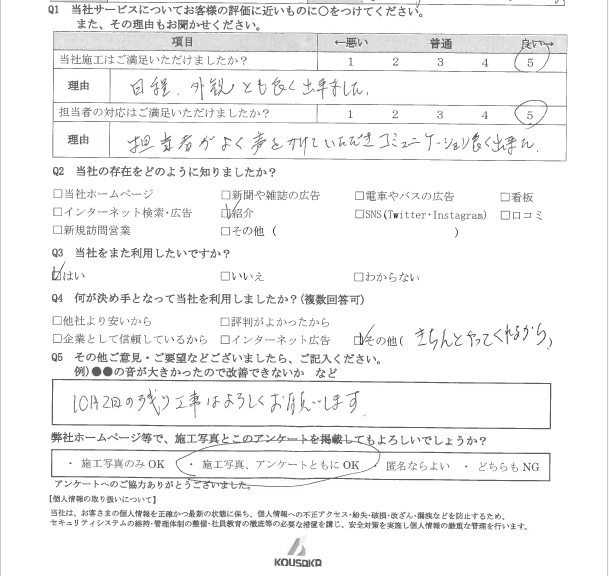 Q1 当社サービスについてお客様の評価に近いものに○をつけてください。
また、その理由もお聞かせください。
項目 ←悪い 普通 良い→
当社施工はご満足いただけましたか? 1 2 3 4 5
理由 日程、外観とも良く出来ました。
担当者の対応はご満足いただけましたか? 1 2 3 4 5
理由 担当者がよく声をかけていただきコミュニケーション良く出来た。
Q2 当社の存在をどのように知りましたか?
□当社ホームページ □新聞や雑誌の広告 □電車やバスの広告 □看板
□インターネット検索・広告 □紹介 □SNS(Twitter・Instagram) □口コミ
□新規訪問営業 □その他 ( )
Q3 当社をまた利用したいですか?
□はい □いいえ □わからない
Q4 何が決め手となって当社を利用しましたか?(複数回答可)
□他社より安いから □評判がよかったから
□企業として信頼しているから □インターネット広告 □その他( きちんとやってくれるから )
Q5 その他ご意見・ご要望などございましたら、ご記入ください。
例)●●の音が大きかったので改善できないか など
10月2回の残り工事はよろしくお願いします
弊社ホームページ等で、施工写真とこのアンケートを掲載してもよろしいでしょうか?
・ 施工写真のみ OK ・ 施工写真、アンケートともに OK ・ 匿名ならよい ・ どちらも NG
アンケートへのご協力ありがとうございました。
【個人情報の取り扱いについて】
当社は、お客さまの個人情報を正確かつ最新の状態に保ち、個人情報への不正アクセス・紛失・破損・改ざん・漏洩などを防止するため、
セキュリティシステムの維持・管理体制の整備・社員教育の徹底等の必要な措置を講じ、安全対策を実施し個人情報の厳重な管理を行います。
KOUSAKA